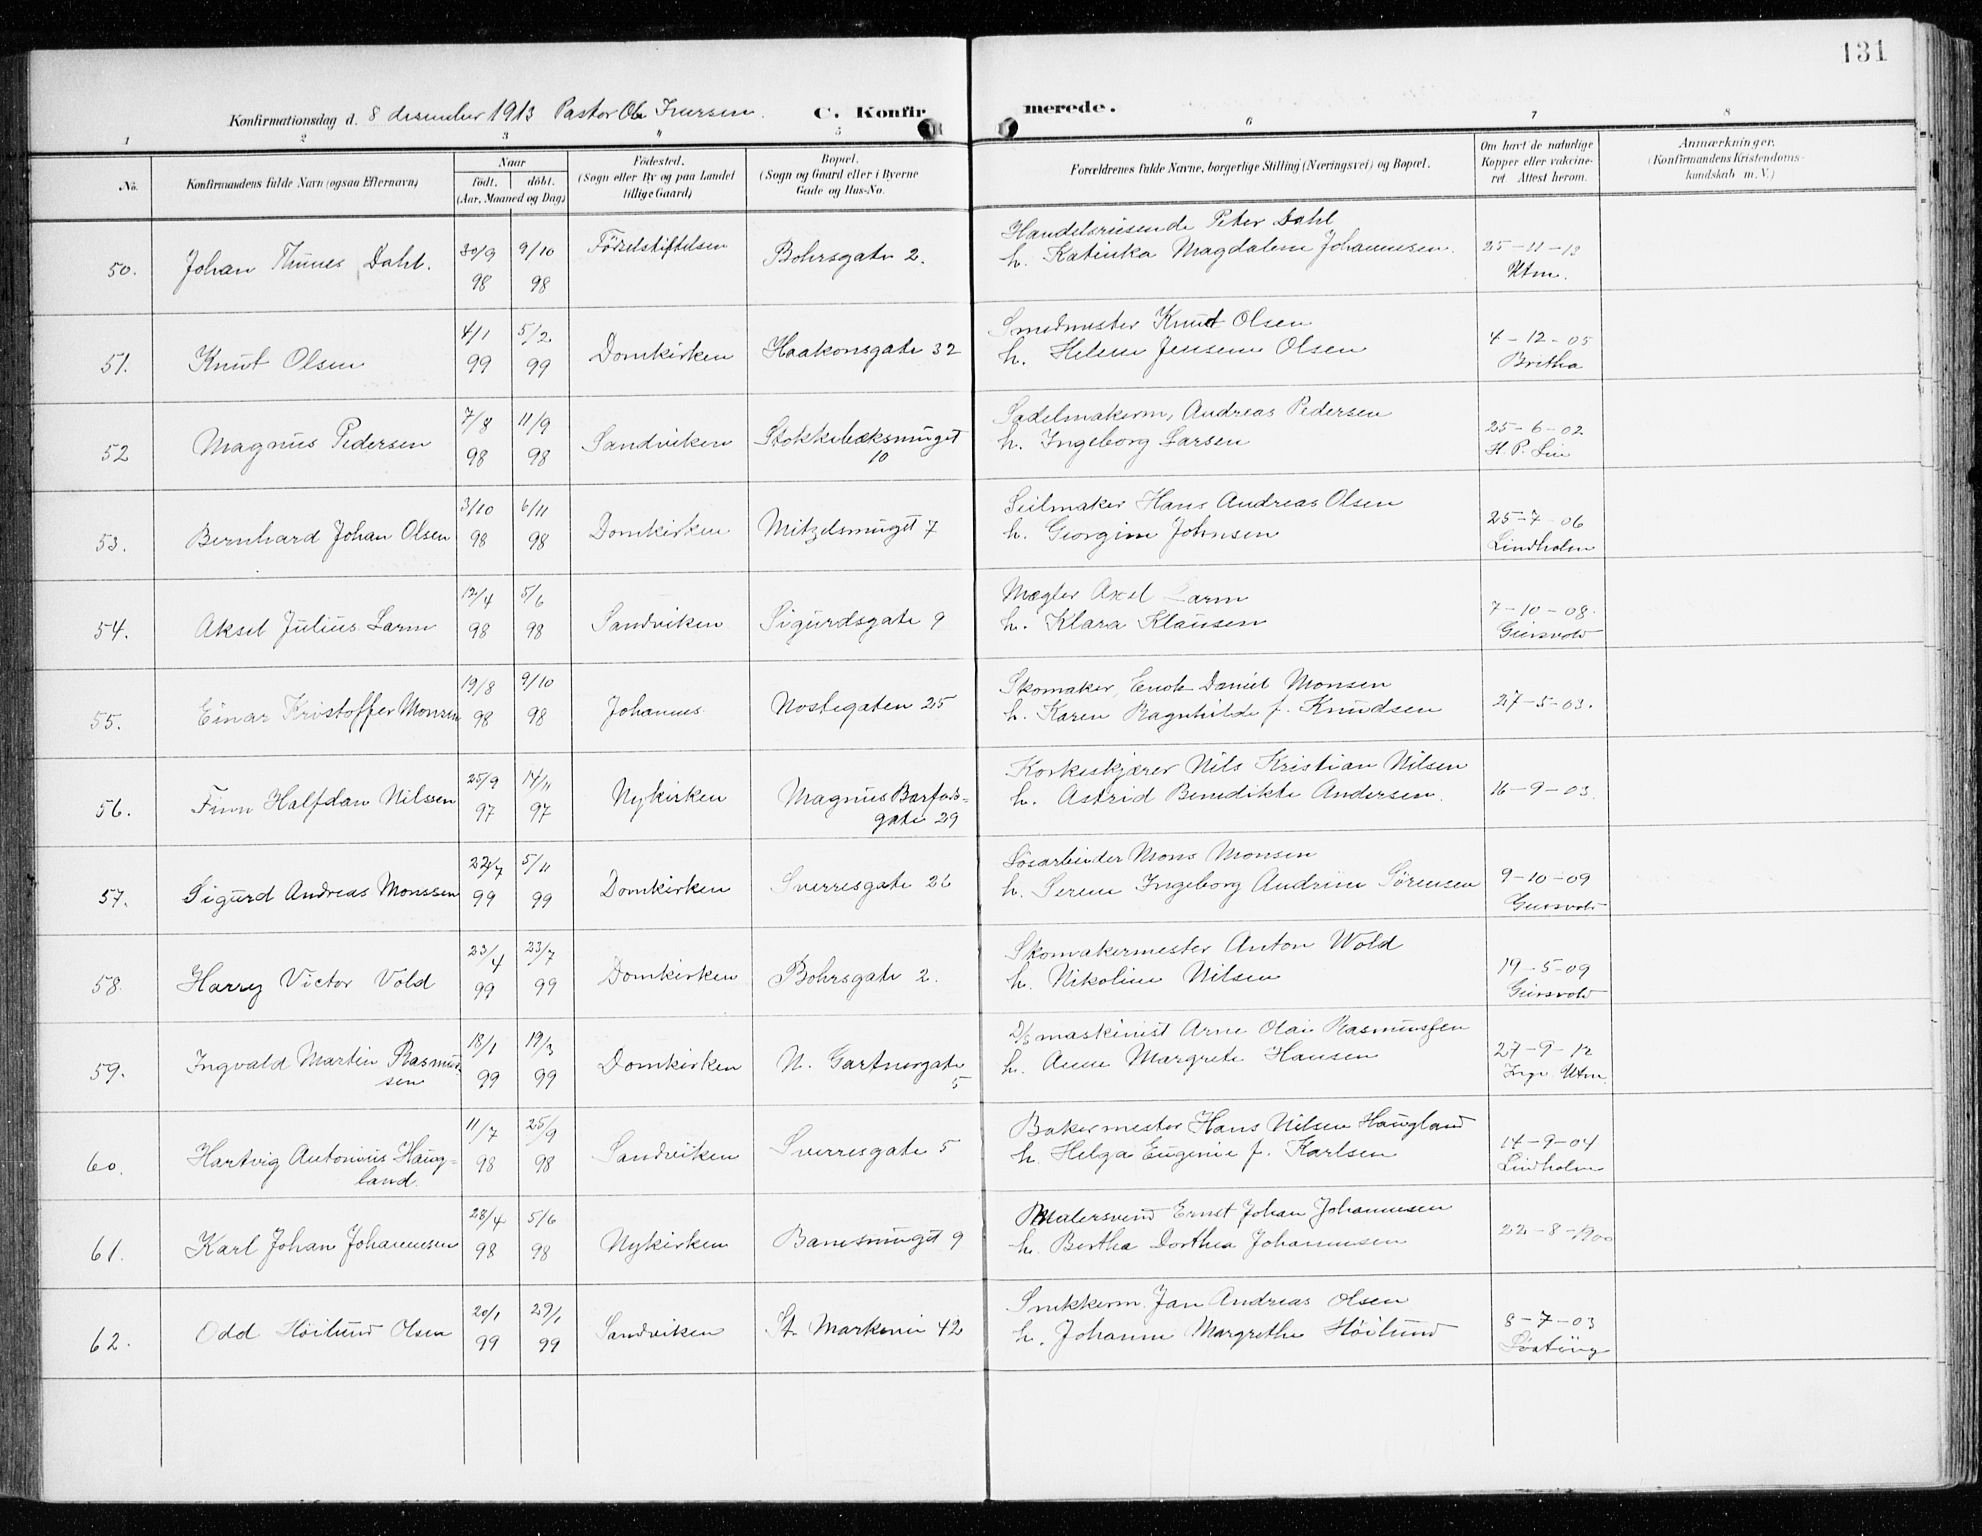 131
Konfirmationsdag d. 8 desember 1913 Pastor Ole Iversen. C. Konfir merede.
1 2 3 4 5 6 7 8
No. Konfirmandens fulde Navn (ogsaa Efternavn)
Naar
født. døbt.
(Aar, Maaned og Dag)
Fødested.
(Sogn eller By og paa Landet
tillige Gaard)
Bopæl.
(Sogn og Gaard eller i Byerne
Gade og Hus-No.
Forældrenes fulde Navne, borgerlige Stilling (Næringsvei) og Bopæl.
Om havt de naturlige
Kopper eller vakcine-
ret. Attest herom.
Anmærkninger.
(Konfirmandens Kristendoms-
kundskab m. V.)
50. Johan Thunes Dahl. 30/9 98 9/10 98 Fødselstiftelsen Bohrsgate 2.
Handelsreisende Peter Dahl
h. Katinka Magdalene Johannesen.
25-11-13
Utm.
51. Knut Olsen 4/1 99 5/2 99 Domkirken Haakonsgate 32
Smedmester Knut Olsen
h. Helene Jensene Olsen
4-12-05
Bretha
52 Magnus Pedersen 7/8 98 11/9 98 Sandviken Stokkebæksmuget
10
Sadelmakerm, Andreas Pedersen
h. Ingeborg Larsen
25-6-02
H. P. Lie
53. Bernhard Johan Olsen 3/10 98 6/11 98 Domkirken Mitzelsmuget 7
Seilmaker Hans Andreas Olsen
h. Georgine Johnsen
25-7-06
Lindholm
54. Aksel Julius Larm 12/4 98 5/6 98 Sandviken Sigurdsgate 9
Mægler Axel Larm
h. Klara Klausen
7-10-08.
Giersvold
55. Einar Kristoffer Monsen 19/8 98 9/10 98 Johannes. Nostegaten 25
Skomaker, Enok Daniel Monsen
h. Karen Ragnhilde f. Knudsen
27-5-03.
56. Finn Halfdan Nilssen 25/9 97 14/11 97 Nykirken Magnus Barfods-
gate 29
Korkeskjærer Nils Kristian Nilsen
h. Astrid Benedikte Andersen.
16-9-03
57. Sigurd Andreas Monssen 22/7 99 5/11 99 Domkirken Sverresgate 26
Løsarbeider Mons Monsen
h. Serene Ingeborg Andrine Sørensen
9-10-09
Giersvold
58. Harry Victor Vold 23/4 99 23/7 99 Domkirken Bohrsgate 2.
Skomakermester Anton Wold
h. Nikoline Nilsen
19-5-09
Giersvold
59. Ingvald Martin Rasmus-
sen 18/1 99 19/3 99 Domkirken N. Gartnergate
5
D/s maskinist Arne Olai Rasmussen
h. Anne Margrete Hansen
27-9-12
Utm.
60. Hartvig Antonius Haug-
land. 11/7 98 25/9 98 Sandviken Sverresgate 5
Bakermester Hans Nilsen Haugland
h. Helga Eugenie f. Karlsen
14-9-04
Lindholm
61. Karl Johan Johannesen 28/4 98 5/6 98 Nykirken Banesmuget 9
Malersvend Ernst Johan Johannesen
h. Bertha Dorthea Johannesen
22-8-1900
62. Odd Høilund Olsen 20/1 99 29/1 99 Sandviken St. Markevei 42
Snekkerm. Jan Andreas Olsen
h. Johanne Margrethe Høilund
8-7-03